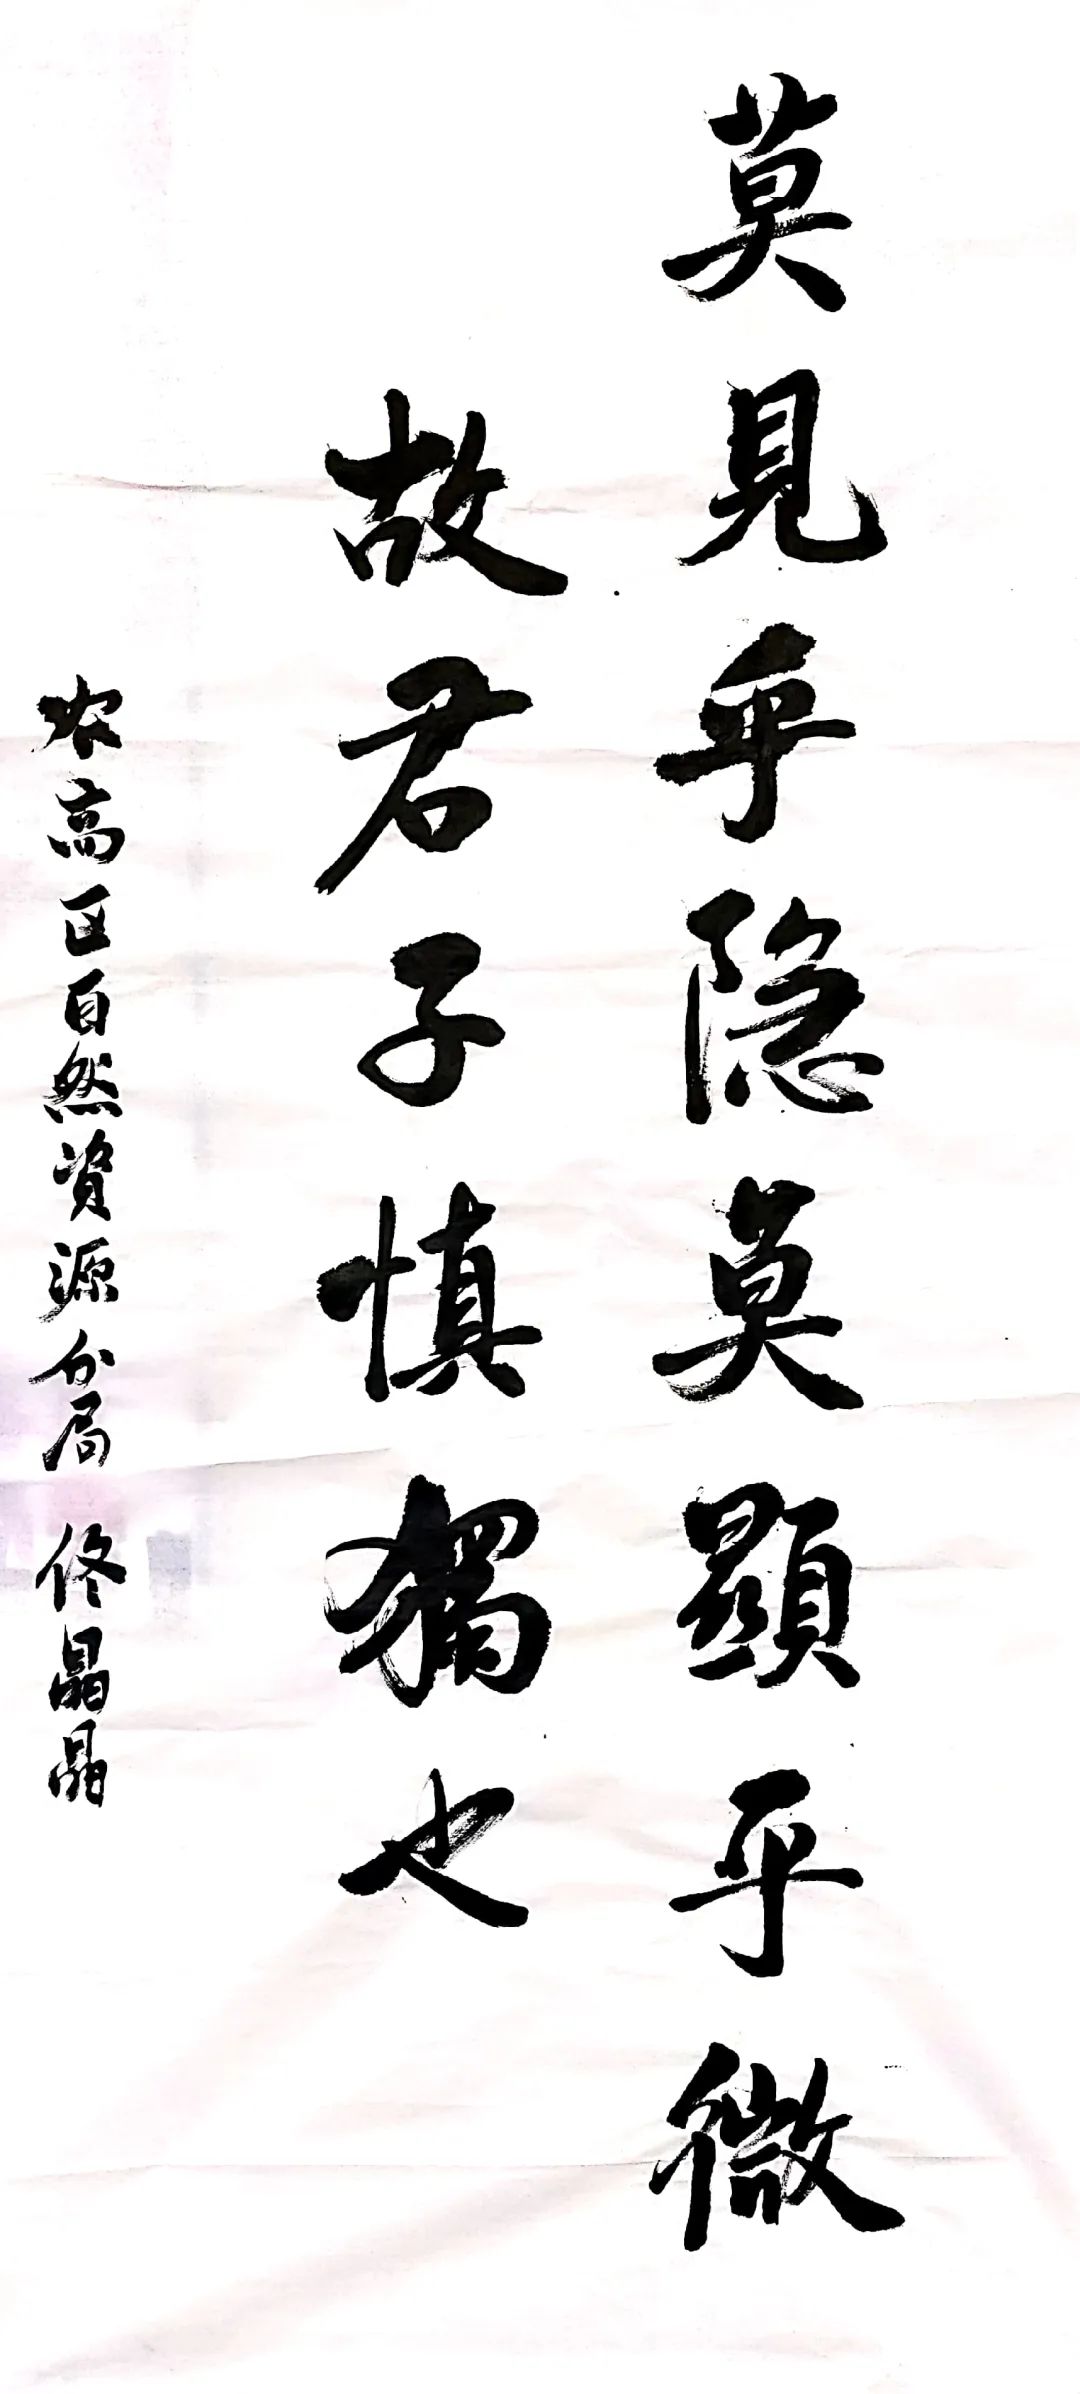 莫見乎隐莫顯乎微
故君子慎獨也
农高区自然資源分局 佟晶晶